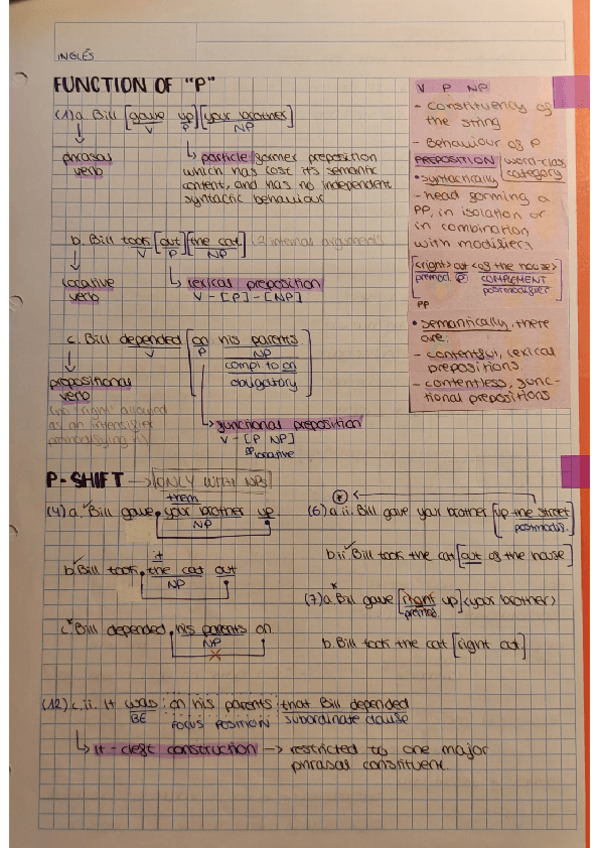 INGLÉS
FUNCTION OF "P"
(1) a. Bill [gave up] [your brother]
V P NP
phrasal verb
particle former preposition
which has lost its semantic
content, and has no independent
syntactic behaviour
b. Bill took [out] [the cat] (2 internal arguments
V P NP
locative verb
lexical preposition
V - [P] - [NP]
c. Bill depended [on his parents]
V P NP
compl to on
obligatory
prepositional verb
(no "right" allowed
as an intensifier
functional preposition
V - [P NP]
PP locative
V P NP
- Constituency of
the string
- Behaviour of P
PREPOSITION word-class
category
• syntactically
- head forming a
PP, in isolation or
in combination
with modifiers
[<right> out <of the house>]
premod. P COMPLEMENT
postmodifier
PP
• semantically, there
are:
- contentful, lexical
prepositions
- contentless, func-
tional prepositions
P-SHIFT → ONLY WITH NPs
them
(4) a. ✓Bill gave your brother up
NP
it
b. ✓Bill took the cat out
NP
c. *Bill depended his parents on
NP
X
(*)
(6) a. ii. Bill gave your brother [up the street]
postmodif.
b ii ✓Bill took the cat [out of the house]
(7) a. *Bill gave [right up] <your brother>
premod.
b. Bill took the cat [right out]
(12) c. ii. It was on his parents that Bill depended
BE FOCUS POSITION subordinate clause
It-cleft construction → restricted to one major
phrasal constituent.